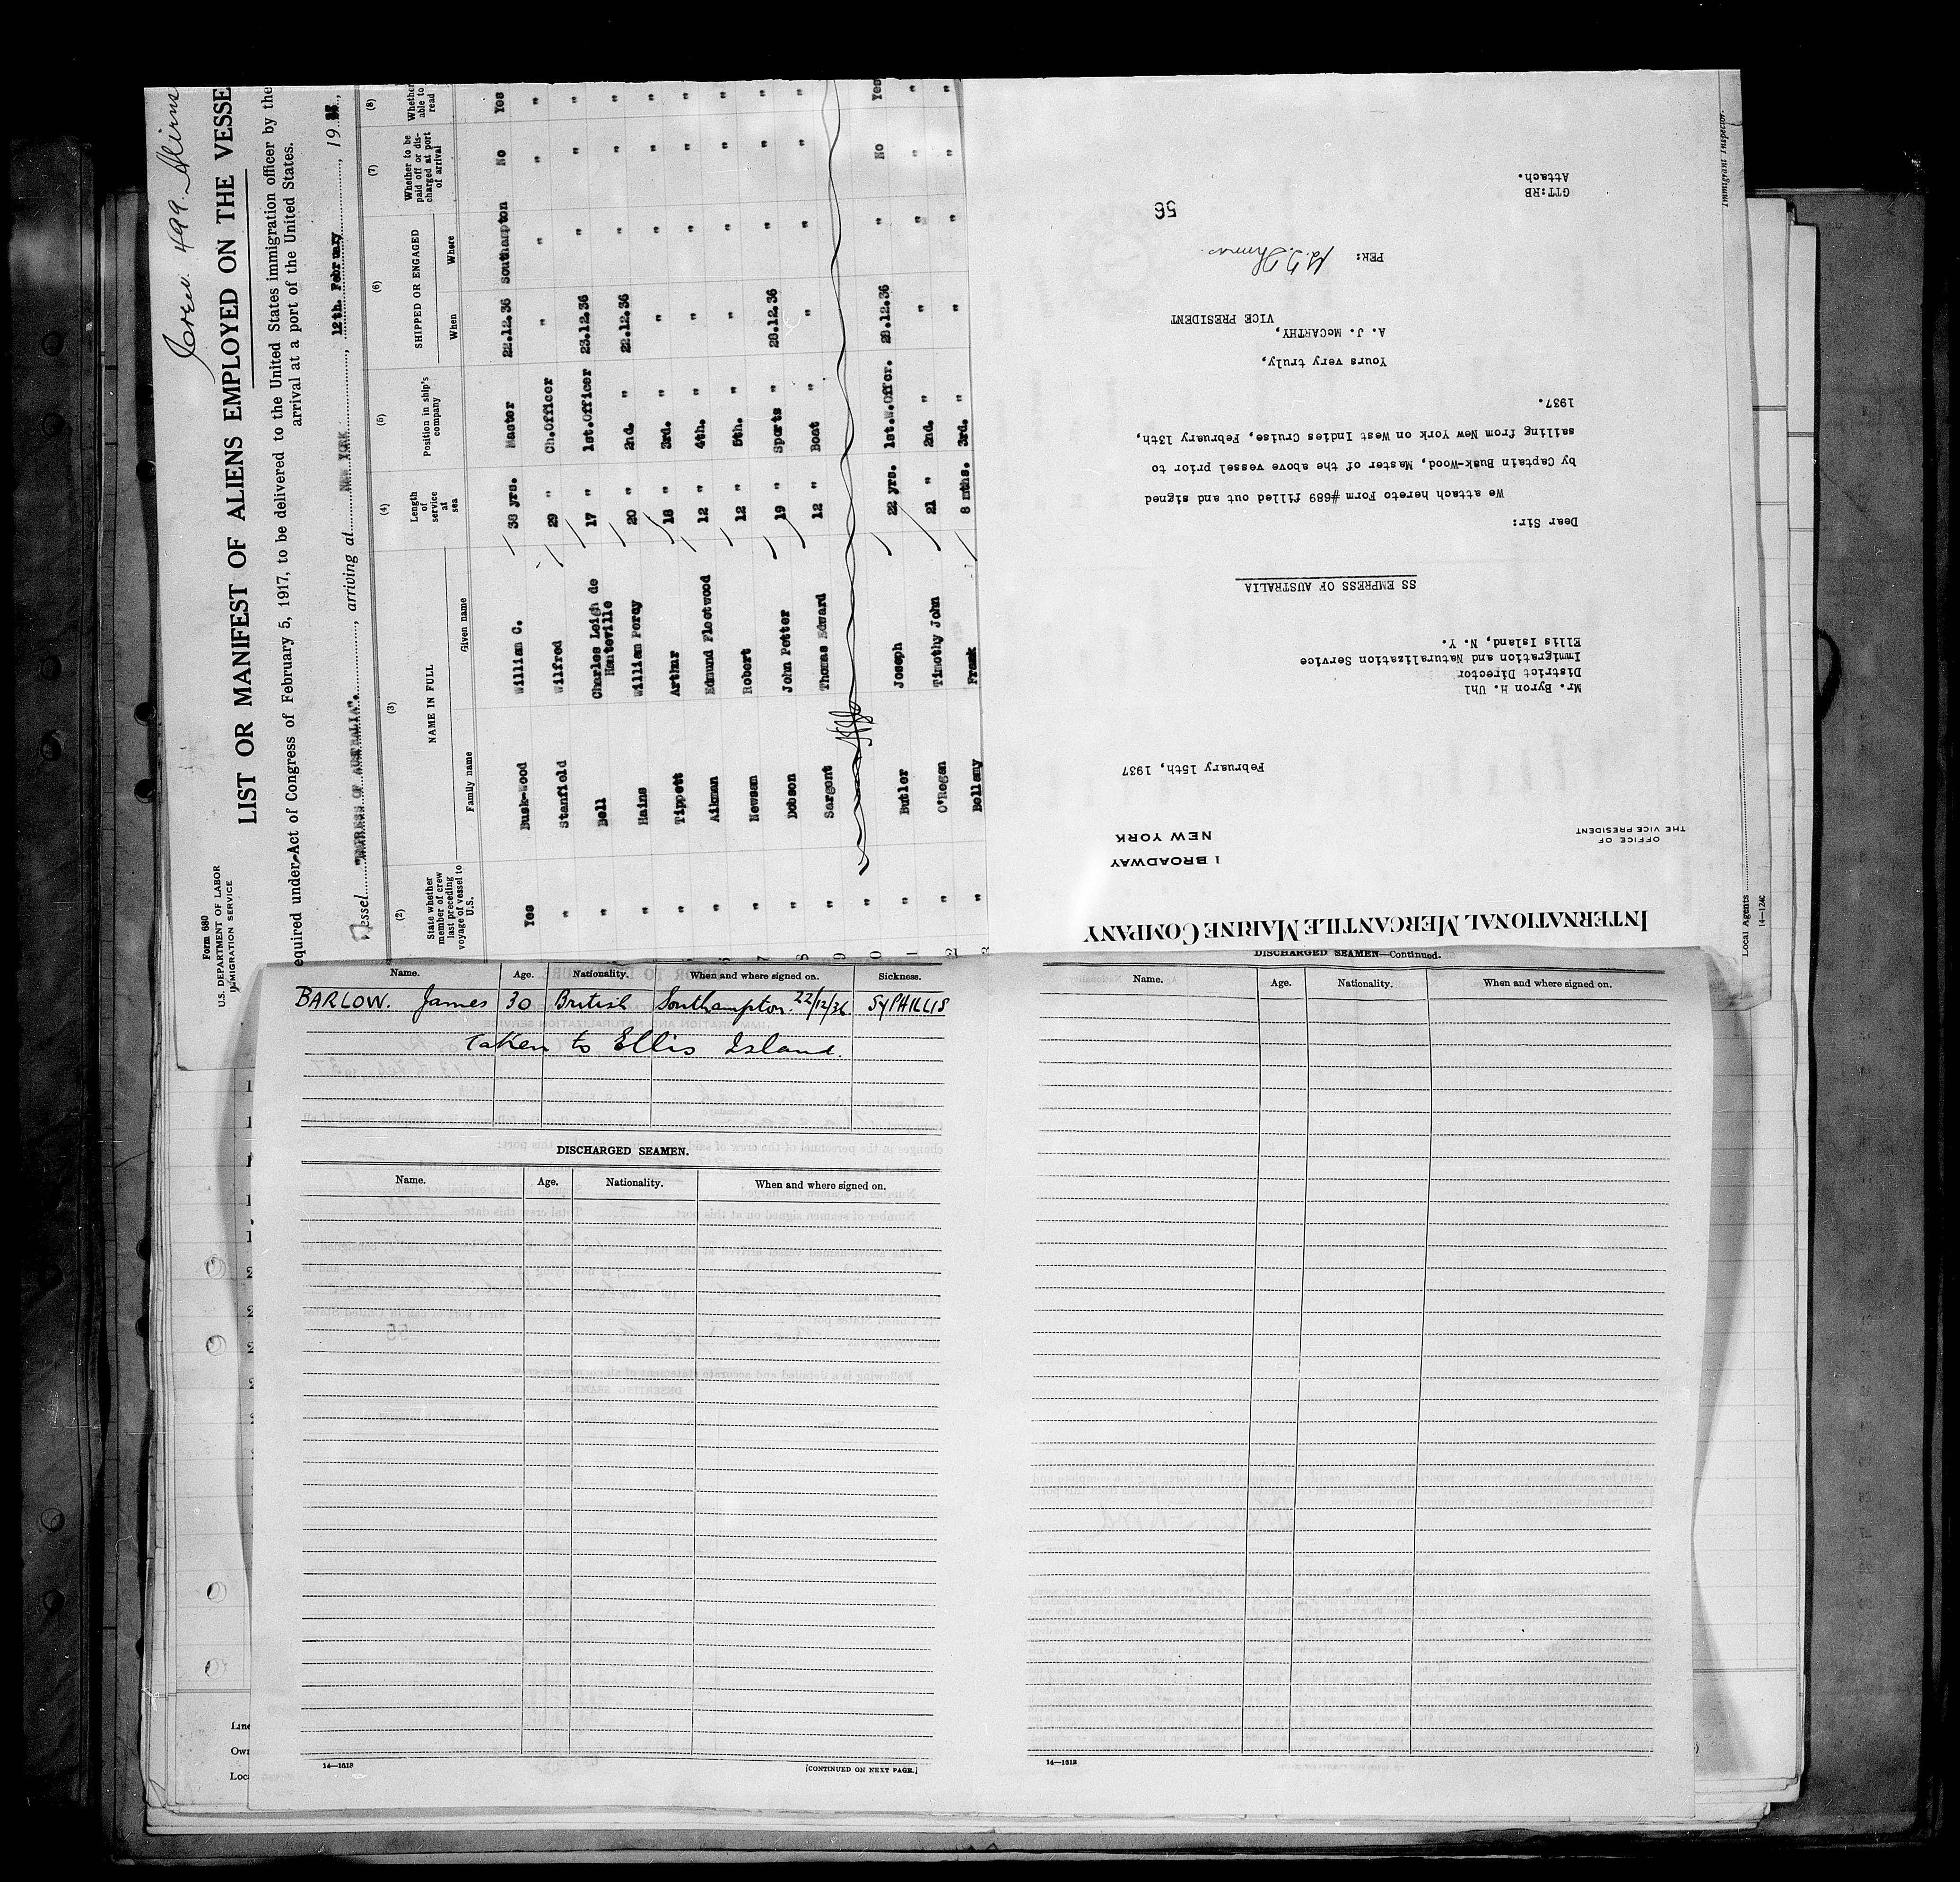 Form 680
U.S. DEPARTMENT OF LABOR
IMMIGRATION SERVICE
Crew 499
LIST OR MANIFEST OF ALIENS EMPLOYED ON THE VESSE
equired under Act of Congress of February 5, 1917, to be delivered to the United States immigration officer by the
arrival at a port of the United States.
Vessel "EMPRESS OF AUSTRALIA", arriving at NEW YORK, 12th. February, 19
(2) (3) (4) (5) (6) (7) (8)
State whether member of crew last preceding voyage of vessel to U.S. NAME IN FULL Family name Given name Length of service at sea Position in ship's company SHIPPED OR ENGAGED When Where Whether to be paid off or discharged at port of arrival Whether able to read
Yes Busk-Wood William C. 38 yrs. Master 22.12.36 Southampton No Yes
" Stanfield Wilfred 29 " Ch.Officer " " " "
" Bell Charles Leigh de Hauteville 17 " 1st.Officer 23.12.36 " " "
" Hains William Percy 20 " 2nd. " 22.12.36 " " "
" Tippett Arthur 18 " 3rd. " " " " "
" Aikman Edmund Fleetwood 12 " 4th. " " " " "
" Newsam Robert 12 " 5th. " " " " "
" Dobson John Potter 19 " Sports " 28.12.36 " " "
" Sargent Thomas Edward 12 " Boat " " " " "
"
" Butler Joseph 22 yrs. 1st.W.Offcr. 28.12.36 " No Yes
" O'Regan Timothy John 21 " 2nd. " " " " "
" Bellamy Frank 8 mths. 3rd. " " " " "
INTERNATIONAL MERCANTILE MARINE COMPANY
1 BROADWAY
NEW YORK
OFFICE OF
THE VICE PRESIDENT
February 15th, 1937
Mr. Byron H. Uhl
District Director
Immigration and Naturalization Service
Ellis Island, N. Y.
SS EMPRESS OF AUSTRALIA
Dear Sir:
We attach hereto Form #689 filled out and signed
by Captain Busk-Wood, Master of the above vessel prior to
sailing from New York on West Indies Cruise, February 13th,
1937.
Yours very truly,
A. J. McCARTHY,
VICE PRESIDENT
PER:
56
GTT:RB
Attach.
Immigrant Inspector.
Local Agents
14—1240
Name. Age. Nationality. When and where signed on. Sickness.
BARLOW. James 30 British Southampton. 22/12/36 SYPHILLIS
Taken to Ellis Island.
DISCHARGED SEAMEN.
Name. Age. Nationality. When and where signed on.
14—1613
[CONTINUED ON NEXT PAGE.]
DISCHARGED SEAMEN—Continued.
Name. Age. Nationality. When and where signed on.
14—1613
Line
Own
Loca